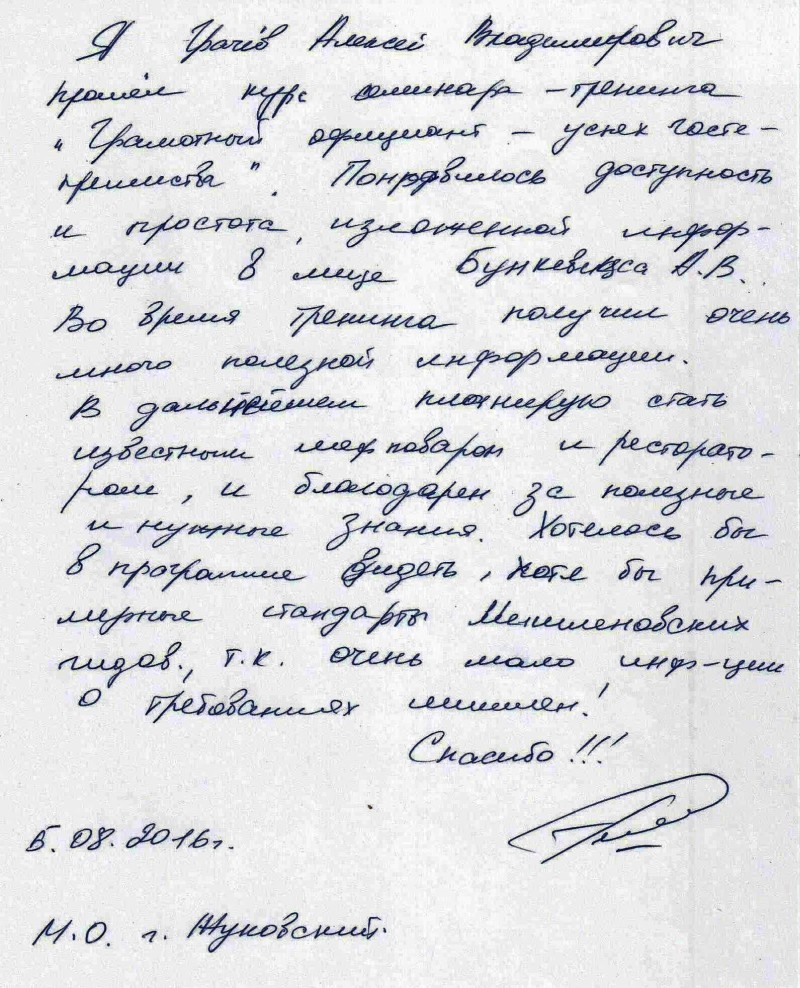 Я Грачёв Алексей Владимирович
прошёл курс семинара-тренинга
"Грамотный официант - успех госте-
преимства". Понравилось доступность
и простота, изложенной инфор-
мации в лице Бункевицса А.В.
Во время тренинга получил очень
много полезной информации.
В дальнейшем планирую стать
известным шеф поваром и ресторато-
ром, и благодарен за полезные
и нужные знания. Хотелось бы
в программе видеть, хотя бы при-
мерные стандарты Мишленовских
гидов., т.к. очень мало инф-ции
о требованиях мишлен!
Спасибо!!!
5.08.2016г.
М.О. г. Жуковский.